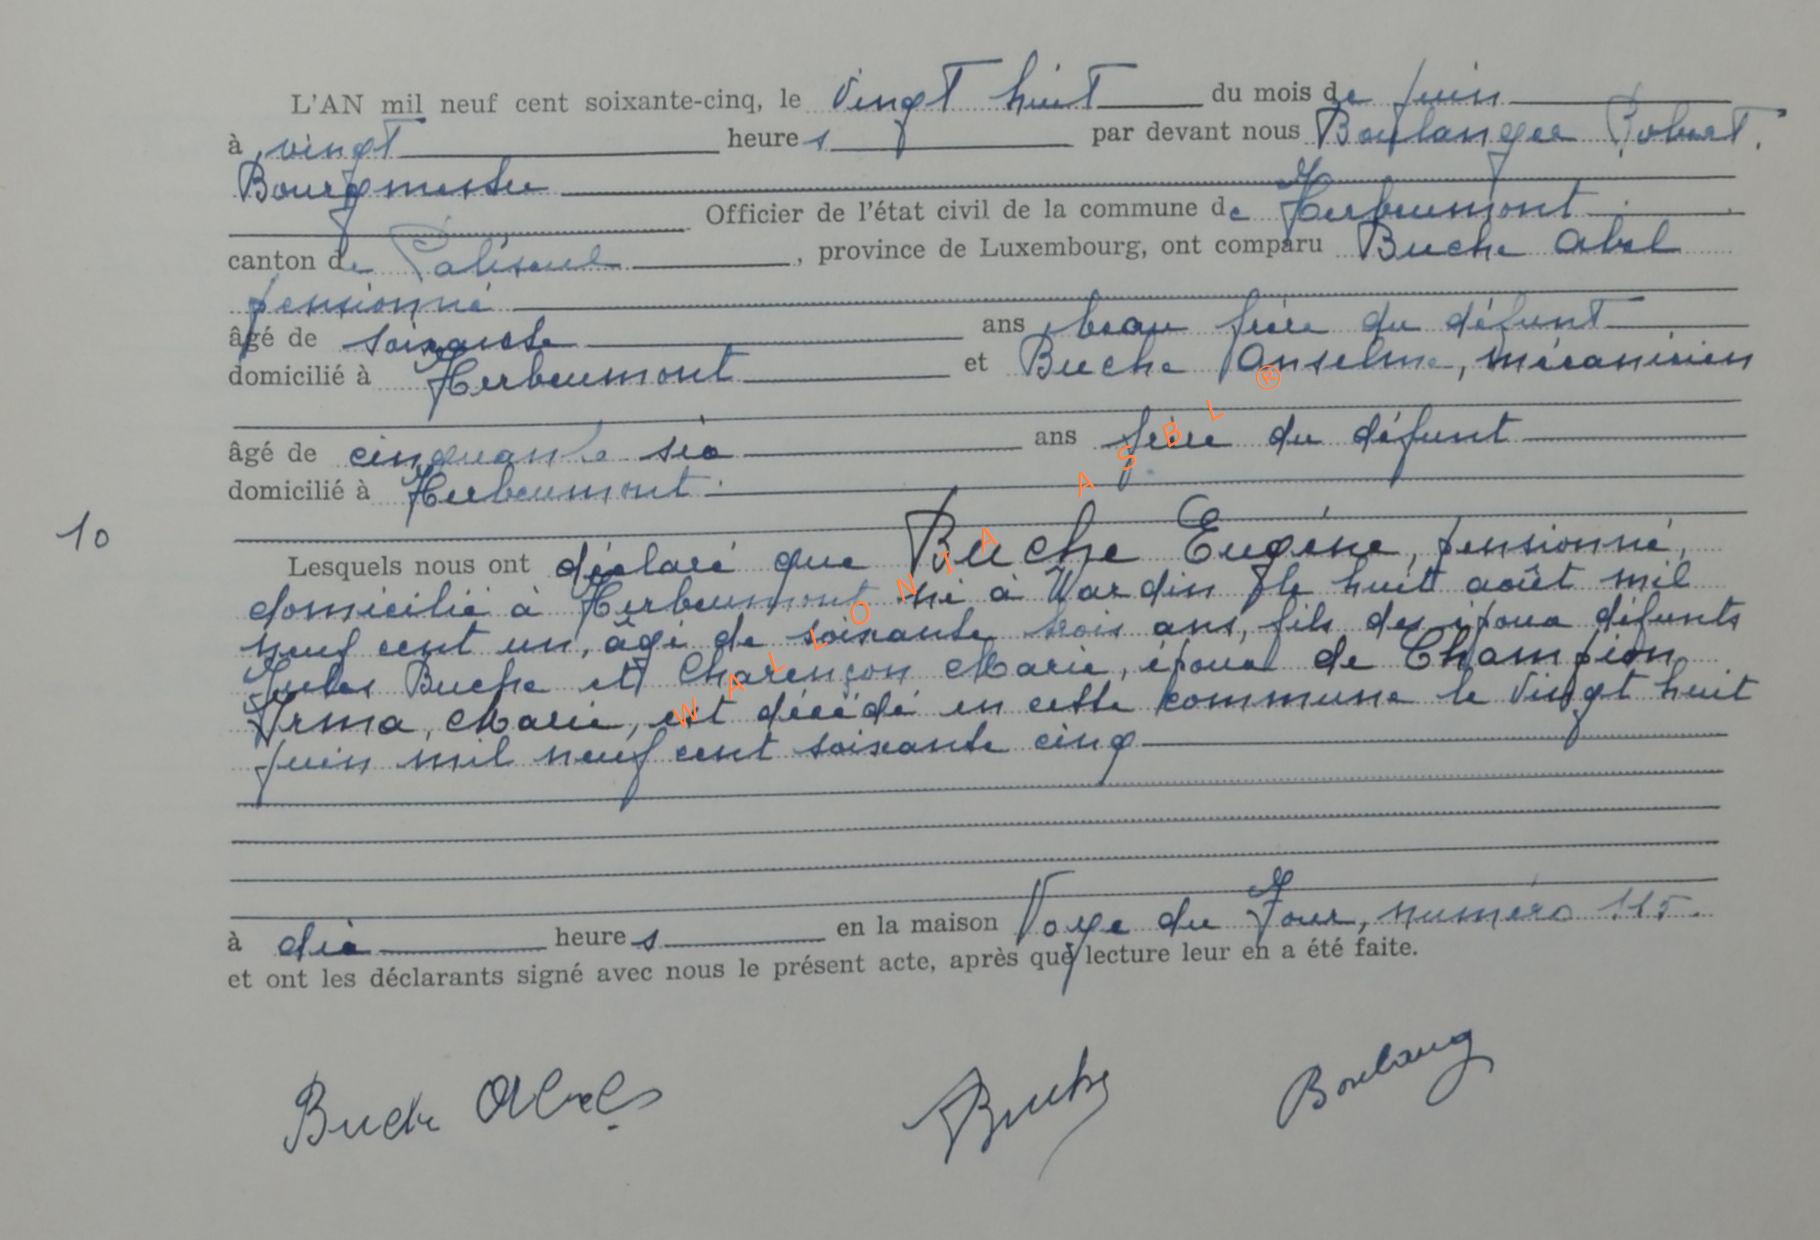 L'AN mil neuf cent soixante-cinq, le vingt huit du mois de juin
à vingt heures par devant nous Boulanger Robert.
Bourgmestre
Officier de l'état civil de la commune de Herbeumont
canton de Paliseul, province de Luxembourg, ont comparu Buche Abel
pensionné
âgé de soixante ans, beau frère du défunt
domicilié à Herbeumont et Buche Anselme, mécanicien
âgé de cinquante six ans frère du défunt
domicilié à Herbeumont
10
Lesquels nous ont déclaré que Buche Eugène, pensionné,
domicilié à Herbeumont né à Wardin le huit août mil
neuf cent un, âgé de soixante trois ans, fils des époux défunts
Jules Buche et Charençon Marie, époux de Champion
Irma, Marie, est décédé en cette commune le vingt huit
juin mil neuf cent soixante cinq
à dix heures en la maison Voye du Four, numéro 115.
et ont les déclarants signé avec nous le présent acte, après que lecture leur en a été faite.
Buche Abel Buche Boulang
WALLONIA ASBL ®